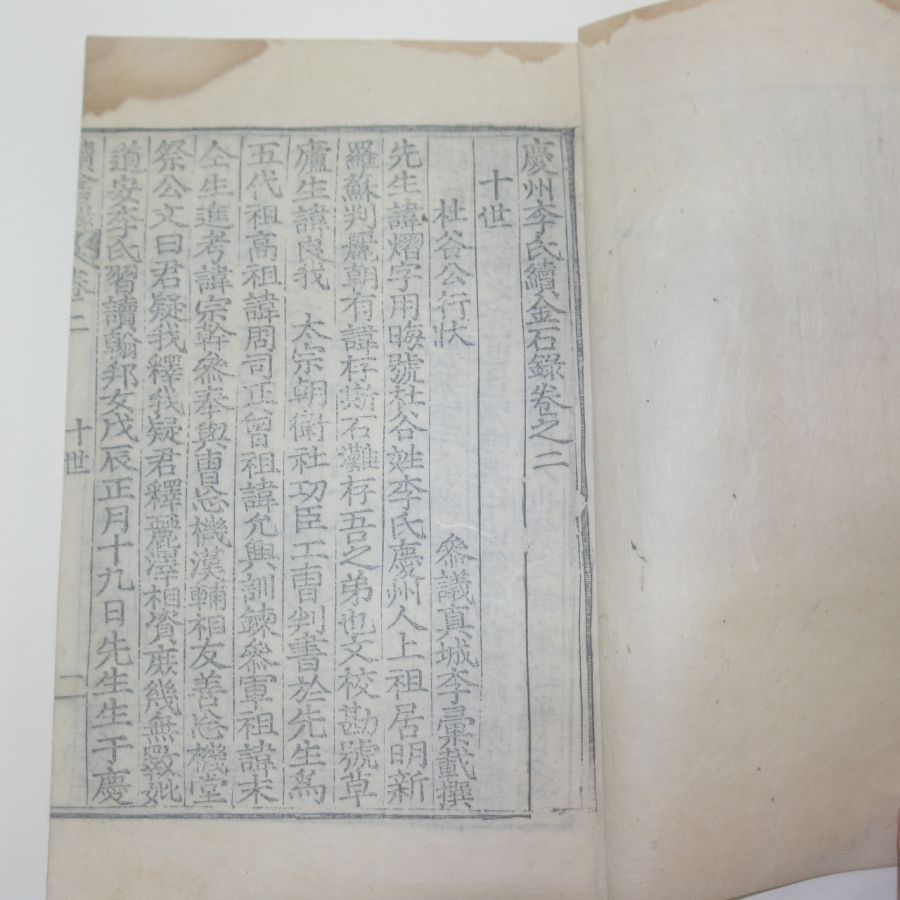 慶州李氏續金石錄卷之二
十世
杜谷公行狀 參議真城李彙載撰
先生諱熠字用晦號杜谷姓李氏慶州人上祖居明新
羅蘇判麗朝有諱存斯石灘存吾之弟也文校勘號草
廬生諱良我 太宗朝衛社功臣工曹判書於先生爲
五代祖高祖諱周司正曾祖諱允興訓鍊參軍祖諱末
仝生進考諱宗幹參奉與曺忘機漢輔相友善忘機堂
祭公文曰君疑我釋我疑君釋麗澤相資庶幾無斁妣
道安李氏習讀翰邦女戊辰正月十九日先生生于慶
卷二 十世